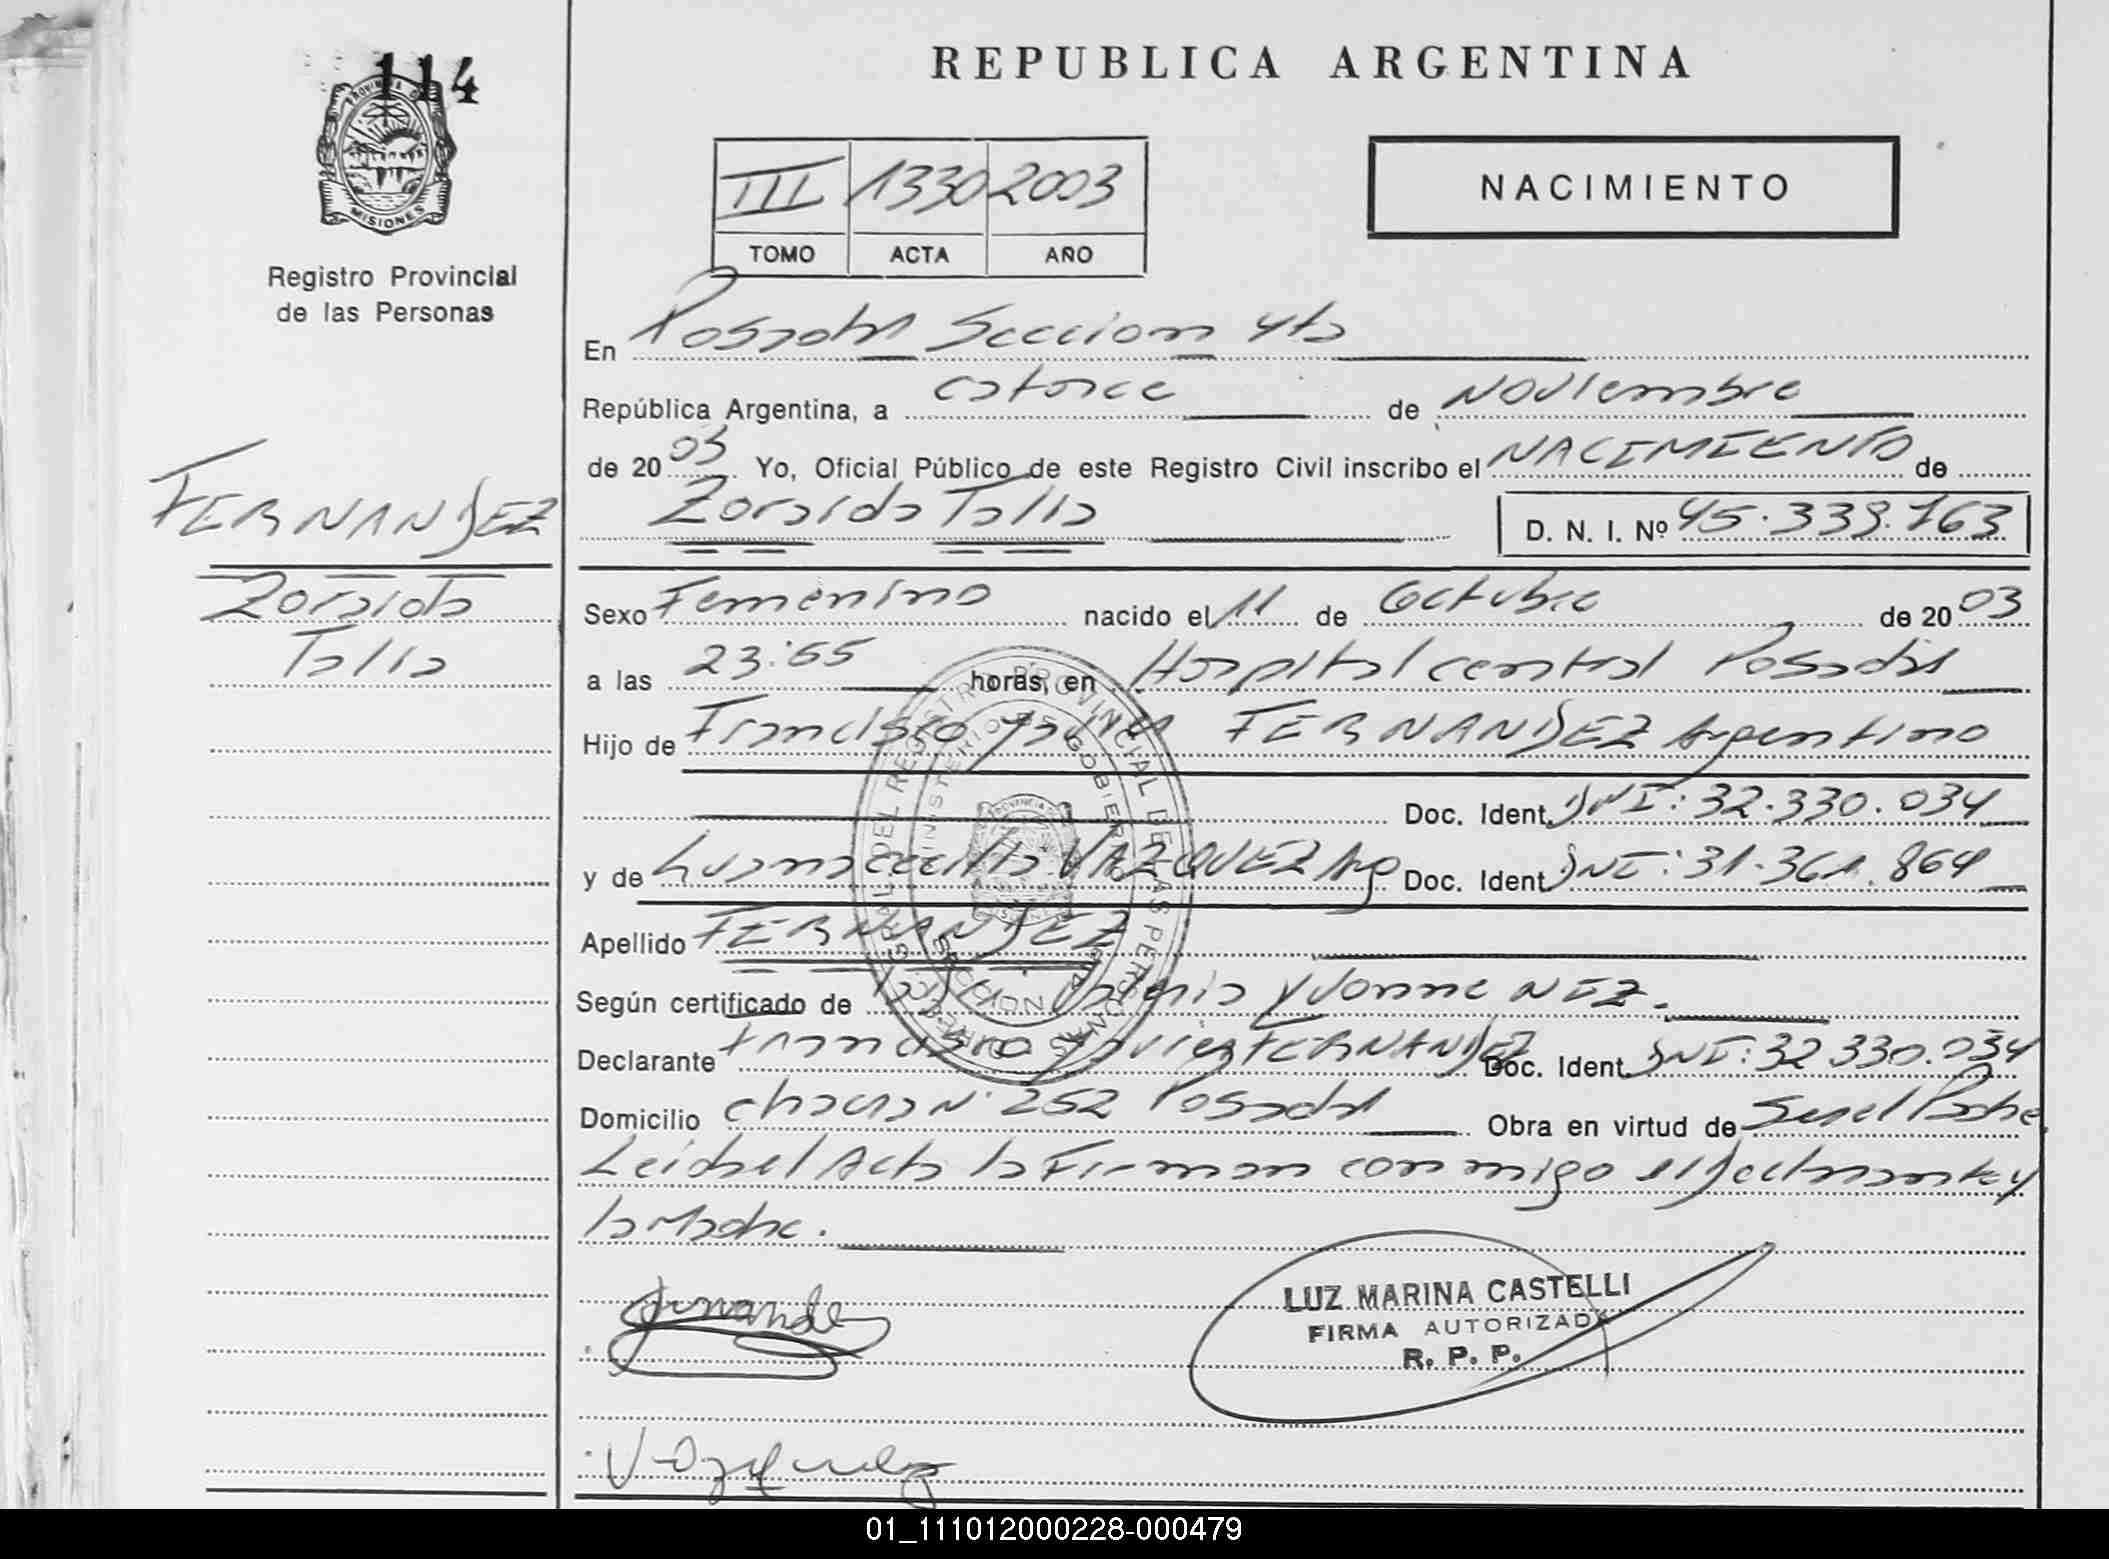 114
PROVINCIA DE
MISIONES
Registro Provincial
de las Personas
FERNANDEZ
Zoraida
Talia
REPUBLICA ARGENTINA
III 1330 2003
TOMO ACTA AÑO
NACIMIENTO
En Posadas Seccion 4ta
República Argentina, a catorce de Noviembre
de 20 03 Yo, Oficial Público de este Registro Civil inscribo el NACIMIENTO de
Zoraida Talia D. N. I. Nº 45.339.763
Sexo Femenino nacido el 11 de Octubre de 20 03
a las 23:55 horas, en Hospital central Posadas
Hijo de Francisco Javier FERNANDEZ Argentino
Doc. Ident. DNI: 32.330.034
y de Luana cecilia VAZQUEZ Arg Doc. Ident. DNI: 31.361.864
Apellido FERNANDEZ
Según certificado de Yvonne NEZ.
Declarante Francisco Javier FERNANDEZ Doc. Ident. DNI: 32 330.034
Domicilio chacra Nº 252 Posadas Obra en virtud de Ser el Padre
Leida el Acta la Firman conmigo el declarante y
la Madre.
Fernandez
LUZ MARINA CASTELLI
FIRMA AUTORIZADA
R. P. P.
Vazquez
01_111012000228-000479